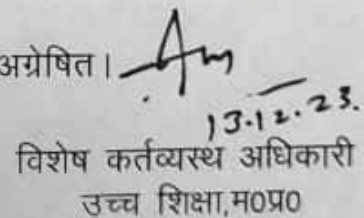 अग्रेषित।
13.12.23.
विशेष कर्तव्यस्थ अधिकारी
उच्च शिक्षा,म0प्र0